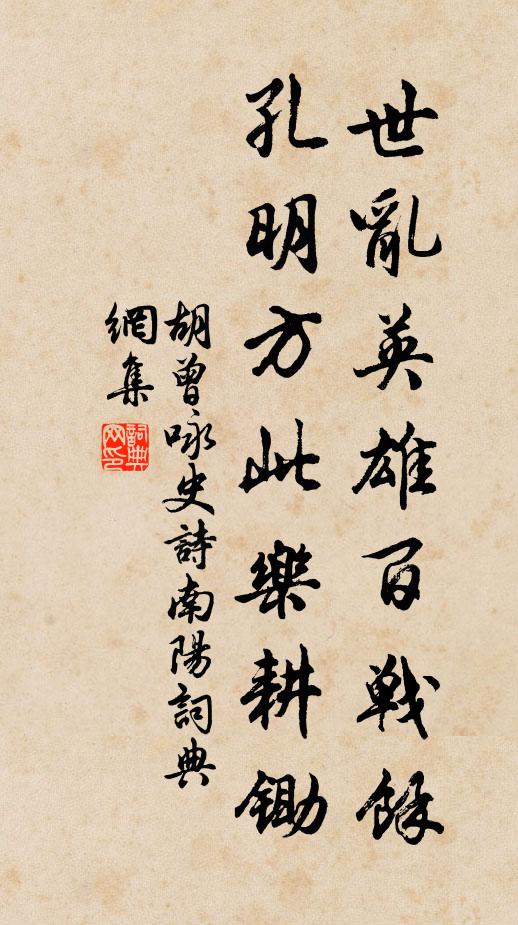 世亂英雄百戰餘
孔明方此樂耕鋤
胡曾咏史詩南陽詞典
網集
詞典網印